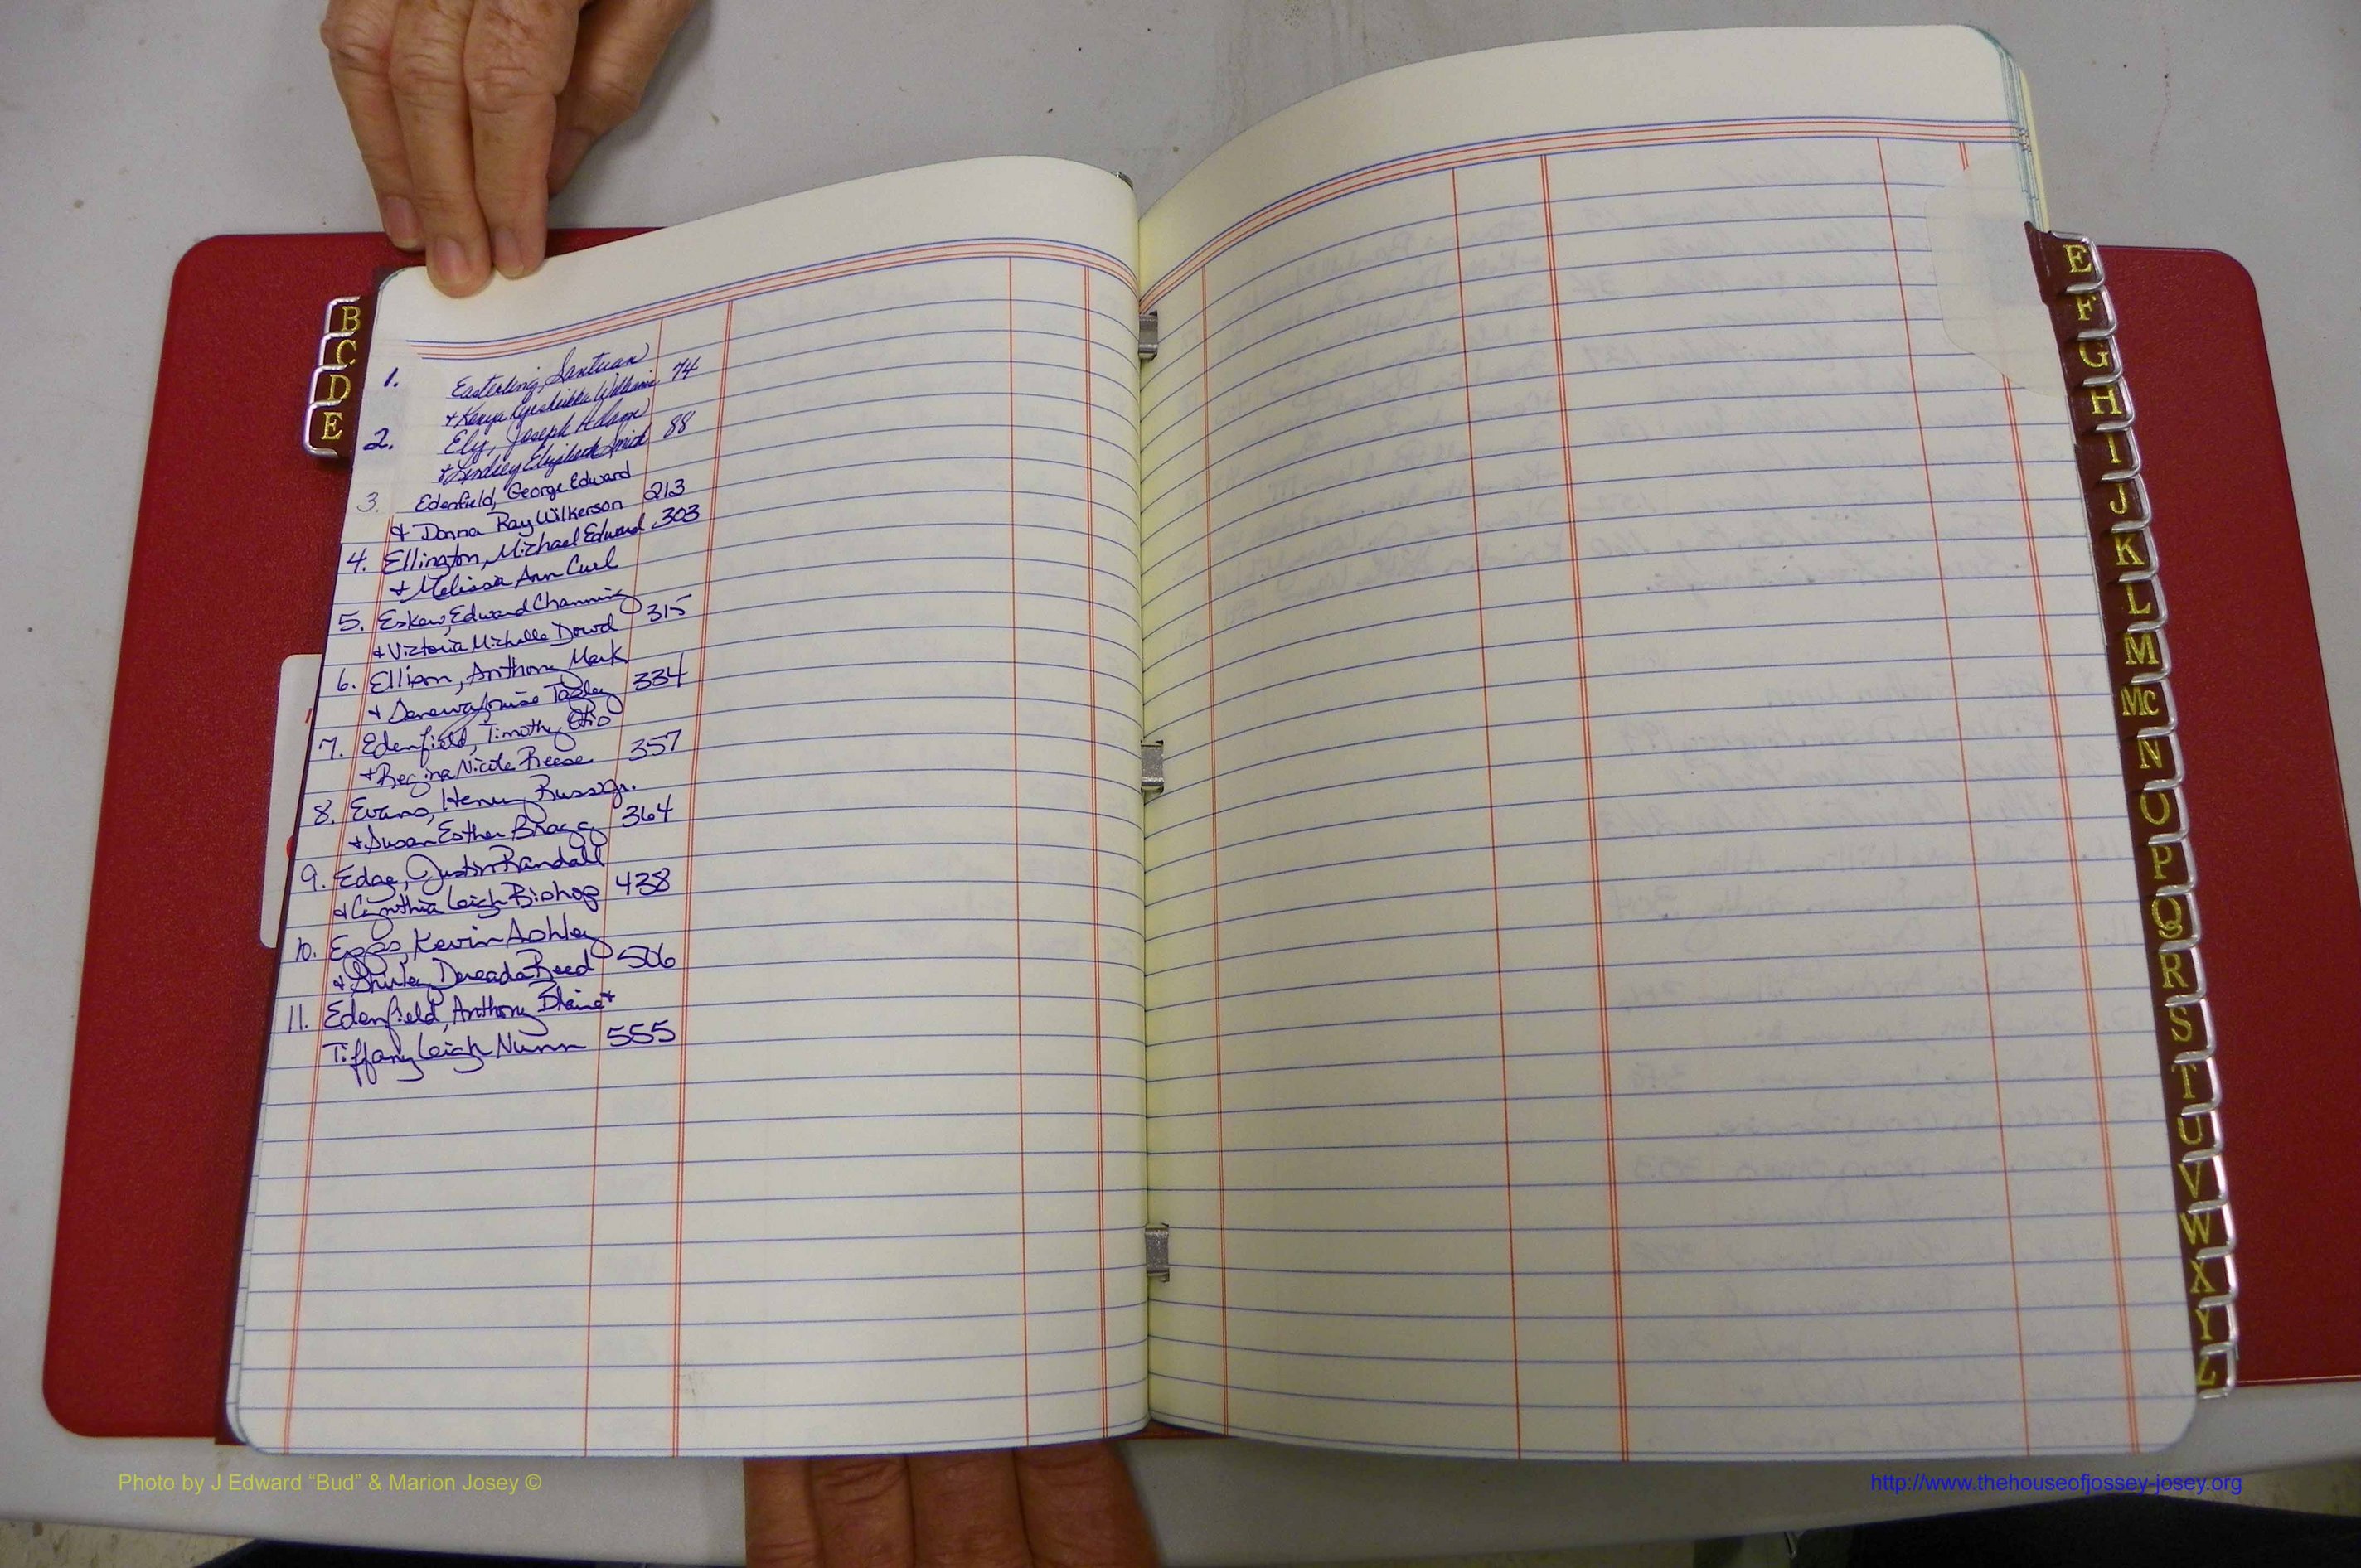 B
C
D
E
1. Easterling, Santuan
+ Kenya Williams 74
2. Ely, Joseph Adam
+ Lindsey Elizabeth Smith 88
3. Edenfield, George Edward
& Donna Ray Wilkerson 213
4. Ellington, Michael Edward 303
+ Melissa Ann Curl
5. Eskew, Edward Channing
+ Victoria Michelle Dowd 315
6. Ellison, Anthony Mark
+ 334
7. Edenfield, Timothy Otis
+ Regina Nicole Reese 357
8. Evans, Henry Russ Jr.
+ Susan Esther Bragg 364
9. Edge, Justin Randall
+ Cynthia Leigh Bishop 438
10. Epps, Kevin Ashley
+ Shirley Reed 506
11. Edenfield, Anthony Blaine +
Tiffany Leigh Nunn 555
E
F
G
H
I
J
K
L
M
Mc
N
O
P
Q
R
S
T
U
V
W
X
Y
Z
Photo by J Edward “Bud” & Marion Josey ©
http://www.thehouseofjossey-josey.org